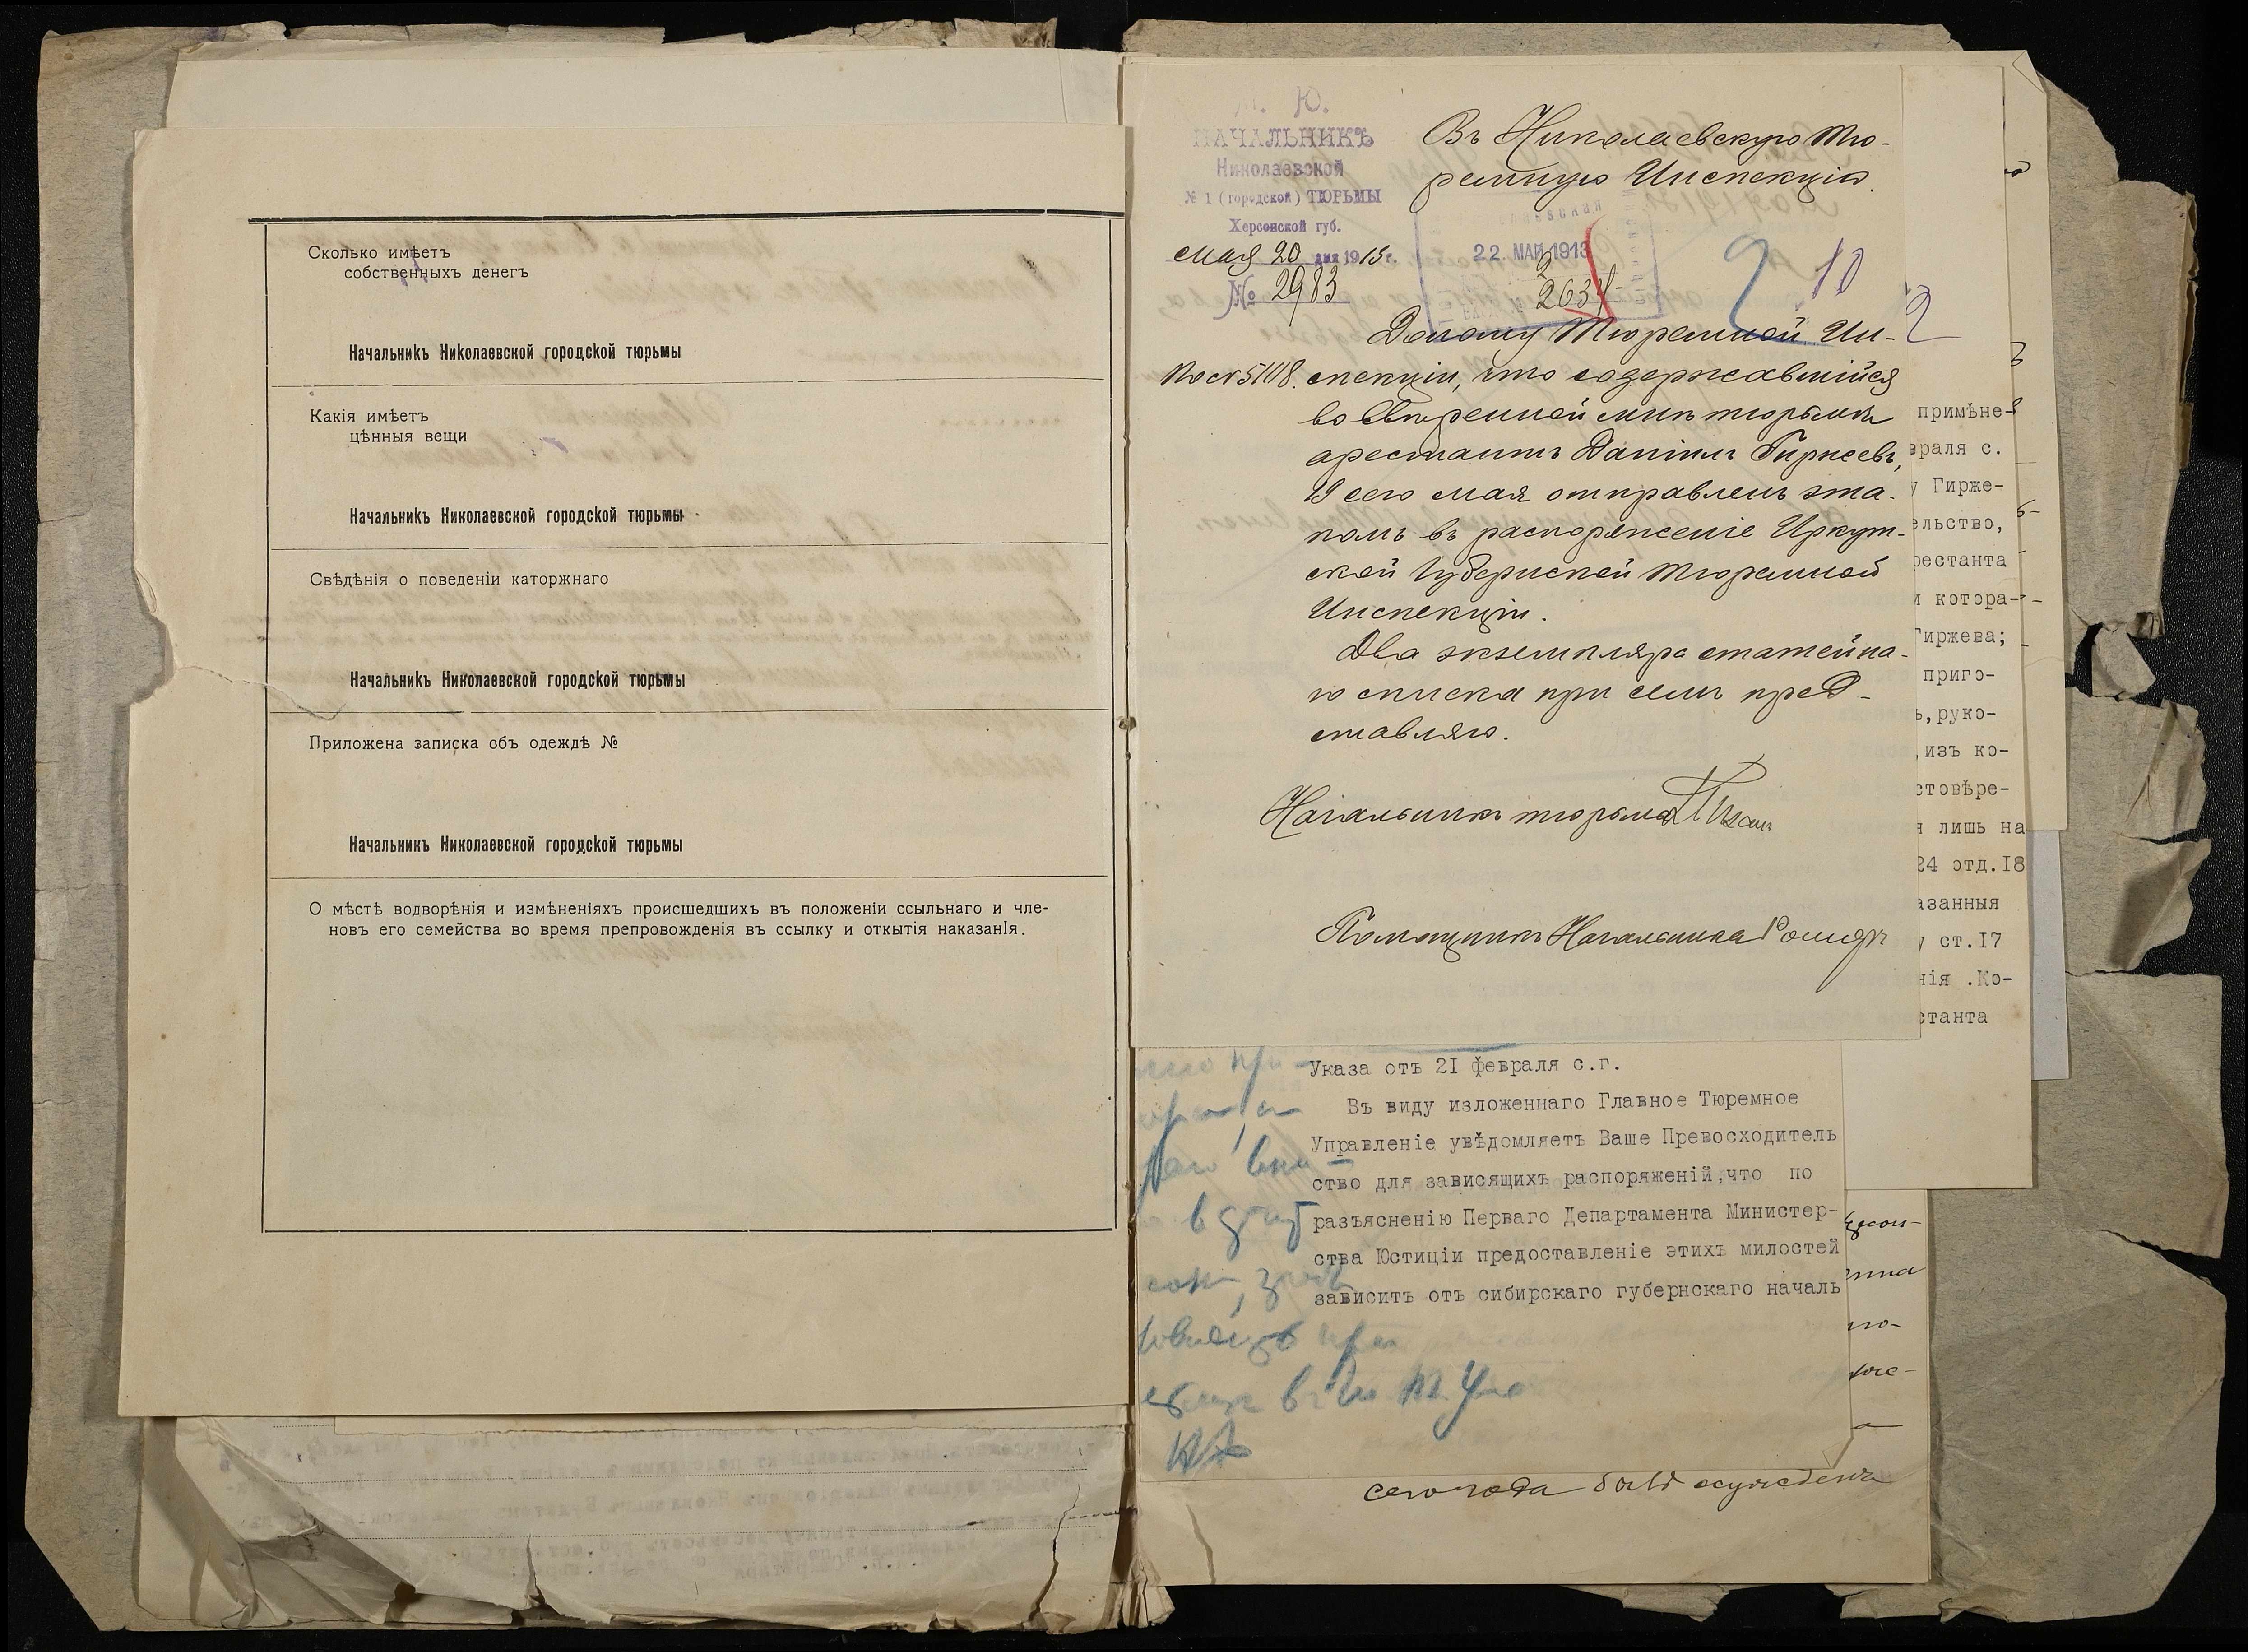 Сколько имѣетъ
собственныхъ денегъ
Начальникъ Николаевской городской тюрьмы
Какія имѣетъ
цѣнныя вещи
Начальникъ Николаевской городской тюрьмы
Свѣдѣнія о поведеніи каторжнаго
Начальникъ Николаевской городской тюрьмы
Приложена записка объ одеждѣ №
Начальникъ Николаевской городской тюрьмы
О мѣстѣ водворѣнія и измѣненіяхъ происшедшихъ въ положеніи ссыльнаго и чле-
новъ его семейства во время препровожденія въ ссылку и открытія наказанІя.
М. Ю.
НАЧАЛЬНИКЪ
Николаевской
№ 1 (городской) ТЮРЬМЫ
Херсонской губ.
мая 20 дня 1913 г.
№ 2983
Въ Николаевскую Тю-
ремную Инспекцію.
22 МАЙ 1913
2634
10
2
Доношу Тюремной Ин-
На № 5108. спекціи, что содержавшійся
во ввѣренной мнѣ тюрьмѣ
арестантъ Даніилъ Гиржевъ,
19 сего мая отправленъ эта-
помъ въ распоряженіе Иркут-
ской Губернской Тюремной
Инспекціи.
Два экземпляра статейна-
го списка при семъ пред-
ставляю.
Начальникъ тюрьмы
Помощникъ Начальника
примѣне-
враля с.
у Гирже-
ельство,
рестанта
и котора-
Гиржева;
приго-
ь,руко-
,изъ ко-
стовѣре-
я лишь на
24 отд.I8
азанныя
у ст.I7
нія .Ко-
станта
Указа отъ 2I февраля с.г.
Въ виду изложеннаго Главное Тюремное
Управленіе увѣдомляетъ Ваше Превосходитель
ство для зависящихъ распоряженій,что по
разъясненію Перваго Департамента Министер-
ства Юстиціи предоставленіе этихъ милостей
зависитъ отъ сибирскаго губернскаго началь
сего года былъ осужденъ